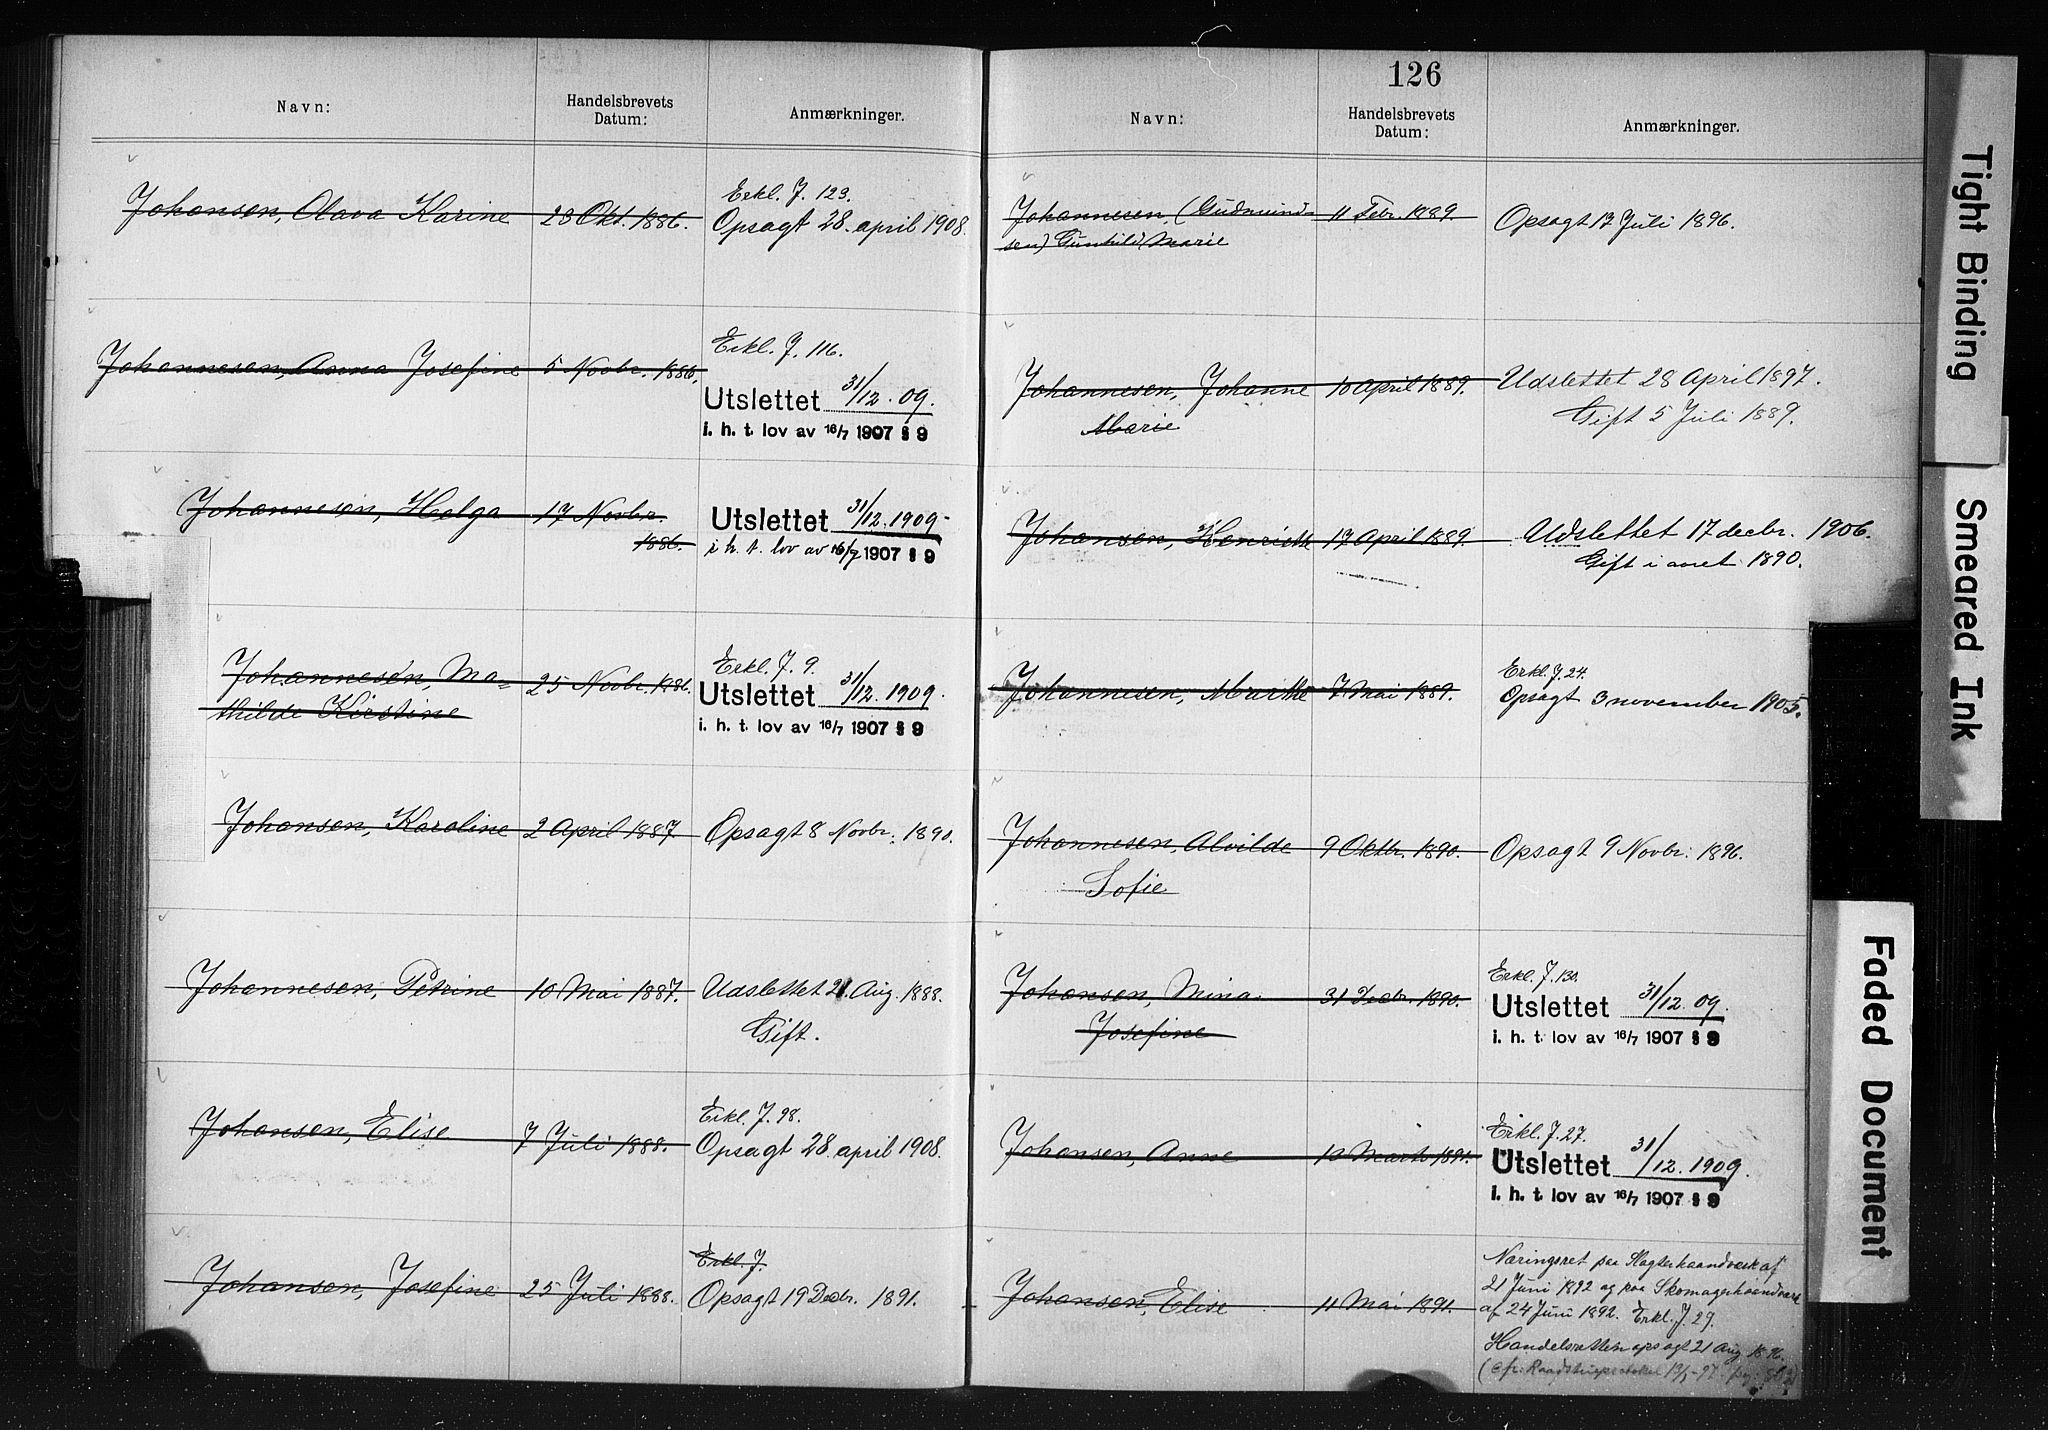 Navn:
Handelsbrevets
Datum:
Anmærkninger.
Johansen, Olava Karine
23 Okt. 1886.
Erkl. J. 123.
Opsagt 28. april 1908.
Johannesen, Anna Josefine
5 Novbr. 1886.
Erkl. J. 116.
Utslettet 31/12. 09.
i. h. t. lov av 16/7 1907 § 9
Johannesen, Helga
17 Novbr.
1886.
Utslettet 31/12. 1909.
i h. t. lov av 16/7 1907 § 9
Johannesen, Ma=
thilde Kirstine
25 Novbr. 1886.
Erkl. J. 9.
Utslettet 31/12. 1909.
i. h. t. lov av 16/7 1907 § 9
Johansen, Karoline
2 April 1887.
Opsagt 8 Novbr. 1890.
Johannesen, Petrine
10 Mai 1887.
Udslettet 21. Aug. 1888.
Gift.
Johansen, Elise
7 Juli 1888.
Erkl. J. 98.
Opsagt 28. april 1908.
Johansen, Josefine
25 Juli 1888.
Erkl. J.
Opsagt 19 Decbr. 1891.
126
Navn:
Handelsbrevets
Datum:
Anmærkninger.
Johannesen, (Gudmund-
sen) Gunhild Marie
11 Febr. 1889.
Opsagt 17 Juli 1896.
Johannesen, Johanne
Marie
10 April 1889.
Udslettet 28 April 1897.
Gift 5 Juli 1889.
Johansen, Henriette
17 April 1889.
Udslettet 17 decbr. 1906.
Gift i aaret 1890.
Johannesen, Marthe
7 Mai 1889.
Erkl. J. 24.
Opsagt 3 november 1905.
Johannesen, Alvilde
Sofie
9 Oktbr. 1890.
Opsagt 9 Novbr. 1896.
Johansen, Mina
Josefine
31 Decbr. 1890.
Erkl. J. 130.
Utslettet 31/12. 09.
i. h. t. lov av 16/7 1907 § 9
Johansen, Anne
10 Marts 1891.
Erkl. J. 27.
Utslettet 31/12. 1909.
i. h. t. lov av 16/7 1907 § 9
Johansen, Elise
11 Mai 1891.
Næringsret paa Slagterhaandværk af
21 Juni 1892 og paa Skomagerhaandværk
af 24 Juni 1892. Erkl. J. 29.
Handelsretten opsagt 21 Aug. 1896.
(cfr. Raadstueprotokol
Tight Binding
Smeared Ink
Faded Document